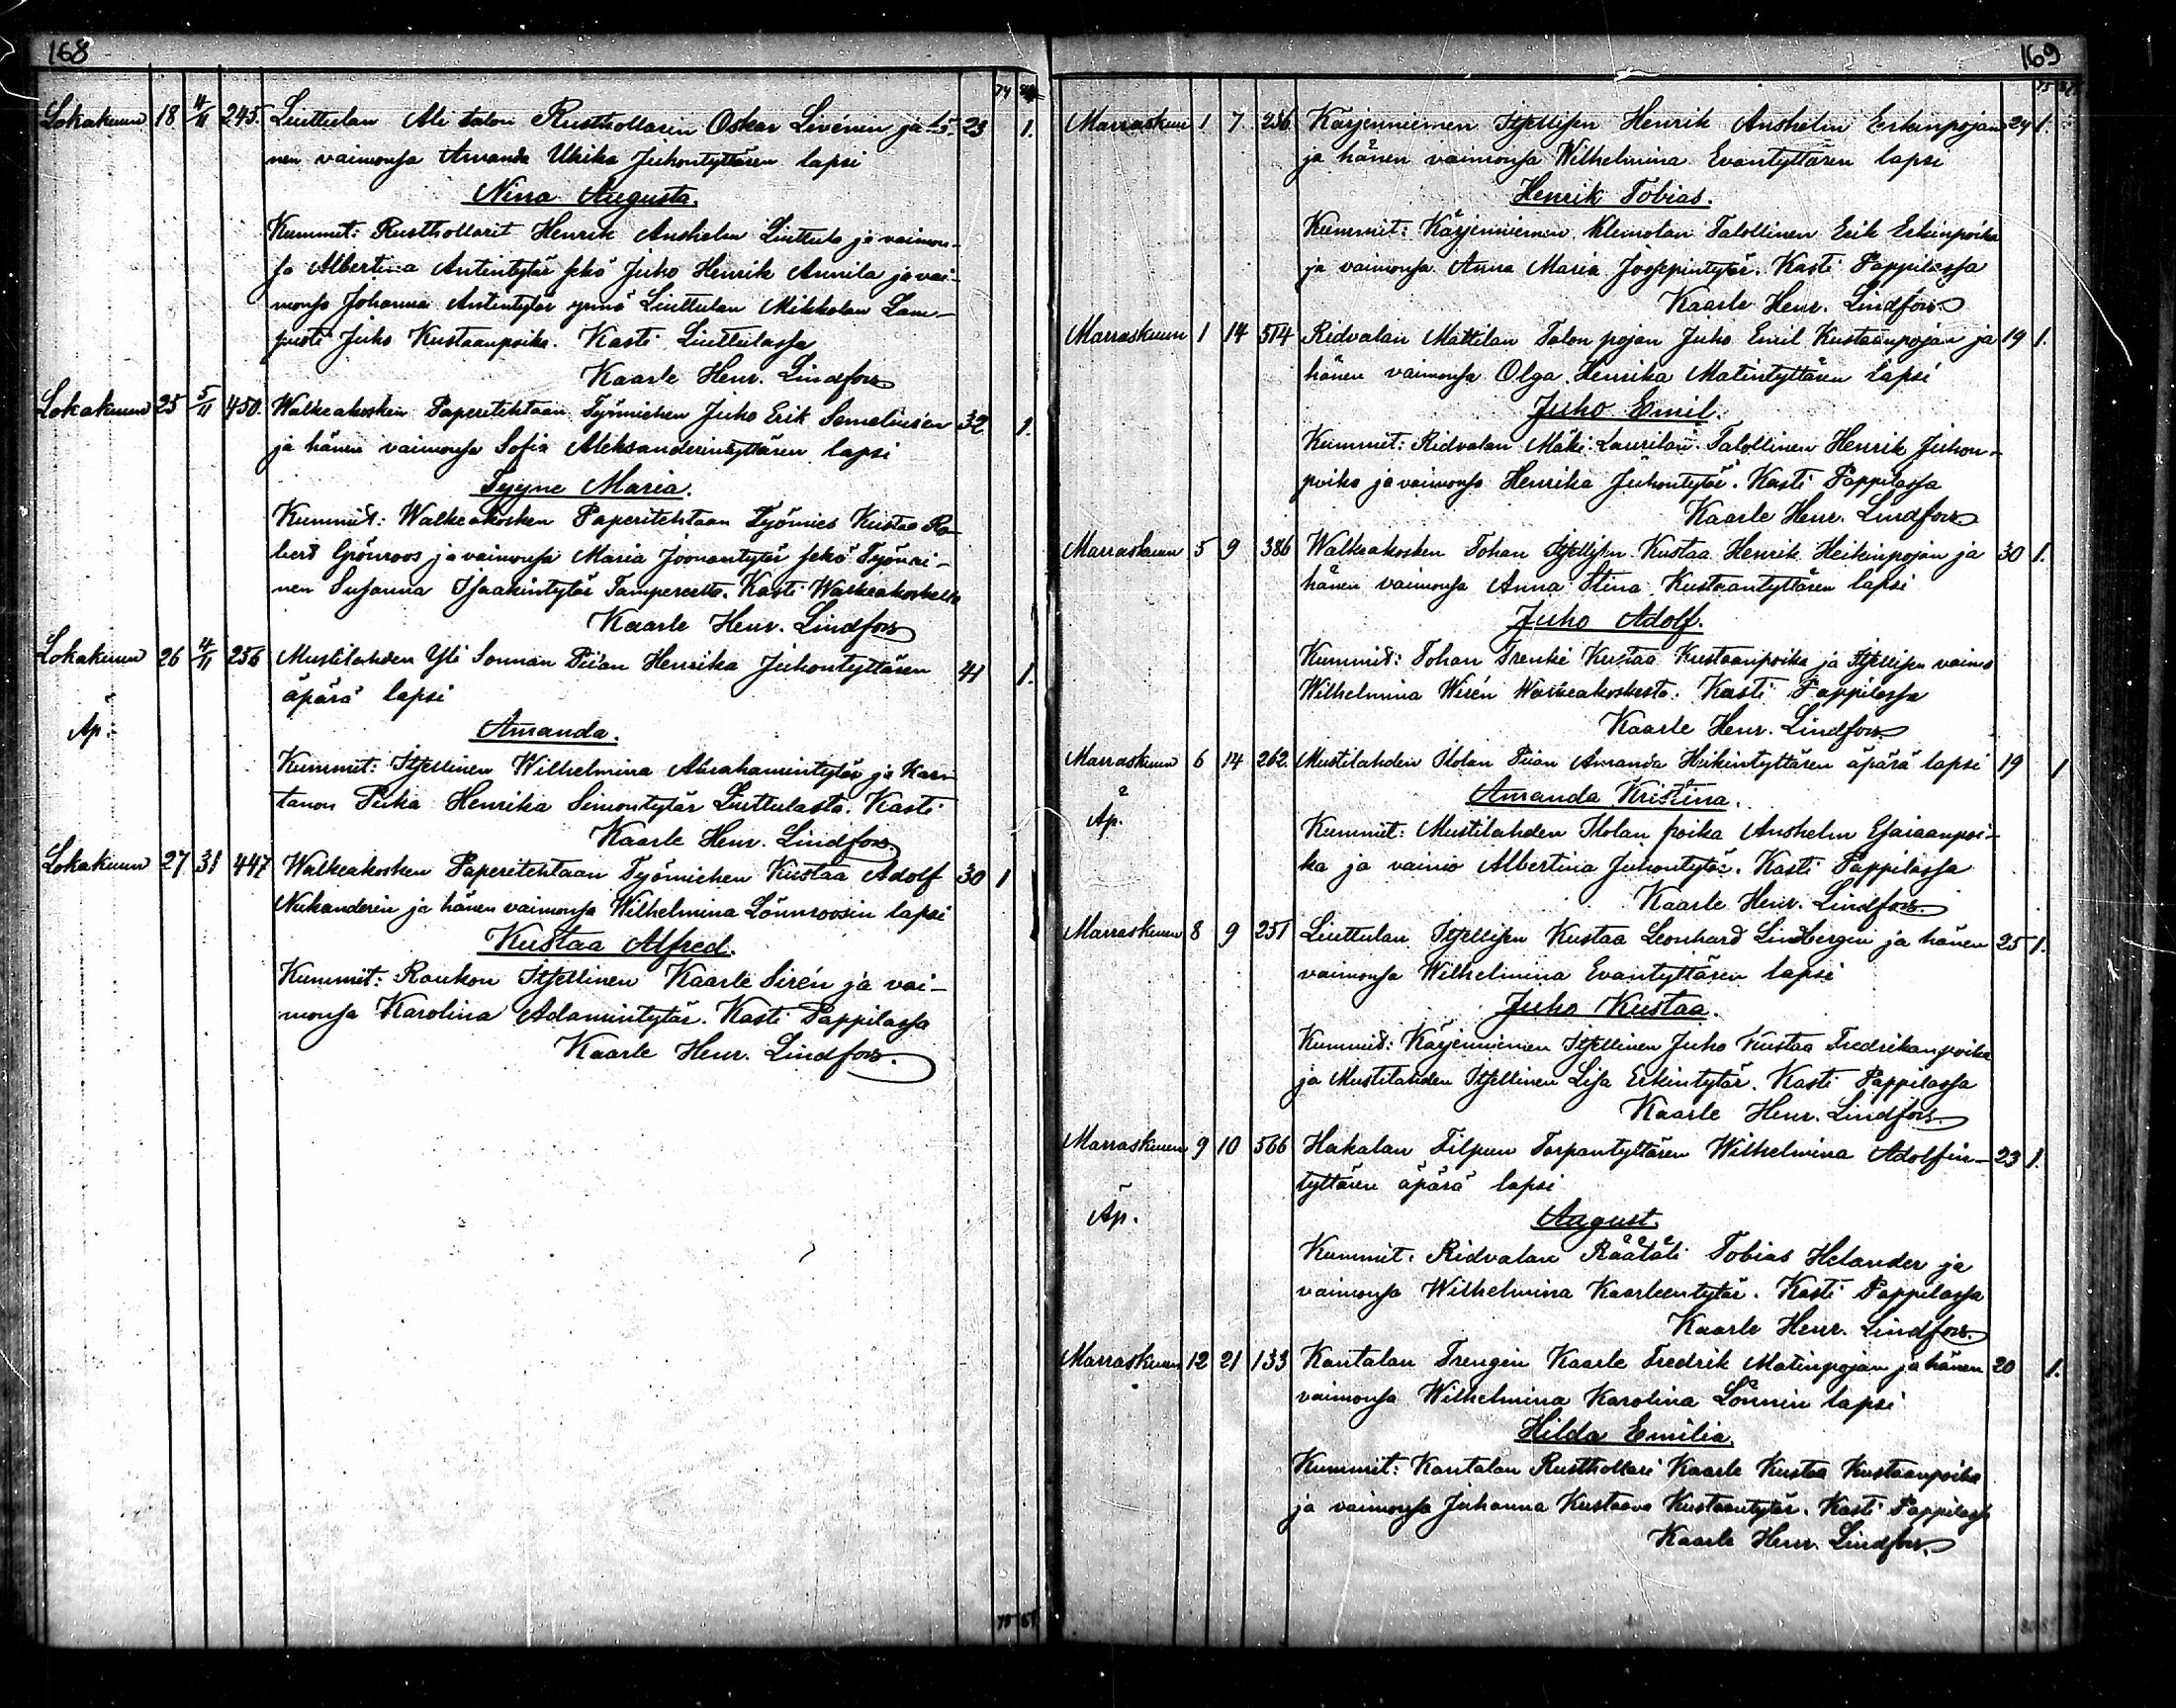 168
74
Lokakuun 18 4/11 245. Liuttulan Ali talon Rusthollarin Oskar Livénin ja hä- 23 1.
nen vaimonsa Amanda Ulrika Juhontyttären lapsi
Nina Augusta.
Kummit: Rusthollarit Henrik Anshelm Liuttula ja vaimon-
sa Albertina Antintytär sekä Juho Henrik Annila ja vai-
monsa Johanna Antintytär ynnä Liuttulan Mikkolan Lam-
puoti Juho Kustaanpoika. Kasti Liuttulassa
Kaarle Henr. Lindfors
Lokakuun 25 5/11 450. Walkeakosken Paperitehtaan Työmiehen Juho Erik Semeliusén 32 1.
ja hänen vaimonsa Sofia Aleksanderintyttären lapsi
Tyyne Maria.
Kummit: Walkeakosken Paperitehtaan Työmies Kustaa Ro-
bert Grönroos ja vaimonsa Maria Joonantytär sekä Työnai-
nen Susanna Isaakintytär Tampereelta. Kasti Walkeakoskella
Kaarle Henr. Lindfors
Lokakuun 26 4/11 256 Mustilahden Yli Sonnan Piian Henrika Juhontyttären 41 1.
äpärä lapsi
Äp.
Amanda.
Kummit: Itsellinen Wilhelmina Abrahamintytär ja Kar-
tanon Piika Henrika Simontytär Liuttulasta. Kasti
Kaarle Henr. Lindfors.
Lokakuun 27 31 447 Walkeakosken Paperitehtaan Työmiehen Kustaa Adolf 30 1
Nukanderin ja hänen vaimonsa Wilhelmina Lönnroosin lapsi
Kustaa Alfred.
Kummit: Raukon Itsellinen Kaarle Sirén ja vai-
monsa Karolina Adamintytär. Kasti Pappilassa
Kaarle Henr. Lindfors.
75 67
169
75 67
Marraskuun 1 7 236 Kärjenniemen Itsellisen Henrik Anshelm Erkinpojan 24 1.
ja hänen vaimonsa Wilhelmina Evantyttären lapsi
Henrik Tobias.
Kummit: Kärjenniemen Klemolan Talollinen Erik Erkinpoika
ja vaimonsa Anna Maria Joseppintytär. Kasti Pappilassa
Kaarle Henr. Lindfors.
Marraskuun 1 14 514 Ridvalan Mattilan Talon pojan Juho Emil Kustaanpojan ja 19 1.
hänen vaimonsa Olga Henrika Matintyttären lapsi
Juho Emil.
Kummit: Ridvalan Mäki-Laurilan Talollinen Henrik Juhon-
poika ja vaimonsa Henrika Juhontytär. Kasti Pappilassa
Kaarle Henr. Lindfors
Marraskuun 5 9 386 Walkeakosken Tohan Itsellisen Kustaa Henrik Heikinpojan ja 30 1.
hänen vaimonsa Anna Stina Kustaantyttären lapsi
Juho Adolf.
Kummit: Tohan Trenki Kustaa Kustaanpoika ja Itsellisen vaimo
Wilhelmina Wirén Walkeakoskesta. Kasti Pappilassa
Kaarle Henr. Lindfors
Marraskuun 6 14 262. Mustilahden Itolan Piian Amanda Heikintyttären äpärä lapsi 19 1
Äp.
Amanda Kristina.
Kummit: Mustilahden Itolan poika Anshelm Esaiaanpoi-
ka ja vaimo Albertina Juhontytär. Kasti Pappilassa
Kaarle Henr. Lindfors.
Marraskuun 8 9 251 Liuttulan Itsellisen Kustaa Leonhard Lindbergin ja hänen 25 1.
vaimonsa Wilhelmina Evantyttären lapsi
Juho Kustaa.
Kummit: Kärjenniemen Itsellinen Juho Kustaa Fredrikanpoika
ja Mustilahden Itsellinen Lisa Erkintytär. Kasti Pappilassa
Kaarle Henr. Lindfors.
Marraskuun 9 10 566 Hakalan Filpun Torpantyttären Wilhelmina Adolfin- 23 1.
tyttären äpärä lapsi
Äp.
August.
Kummit: Ridvalan Räätäli Tobias Helander ja
vaimonsa Wilhelmina Kaarleentytär. Kasti Pappilassa
Kaarle Henr. Lindfors.
Marraskuun 12 21 133 Kantalan Trengin Kaarle Fredrik Matinpojan ja hänen 20 1.
vaimonsa Wilhelmina Karolina Lönnin lapsi
Hilda Emilia.
Kummit: Kantalan Rusthollari Kaarle Kustaa Kustaanpoika
ja vaimonsa Juhanna Kustaava Kustaantytär. Kasti Pappilassa
Kaarle Henr. Lindfors.